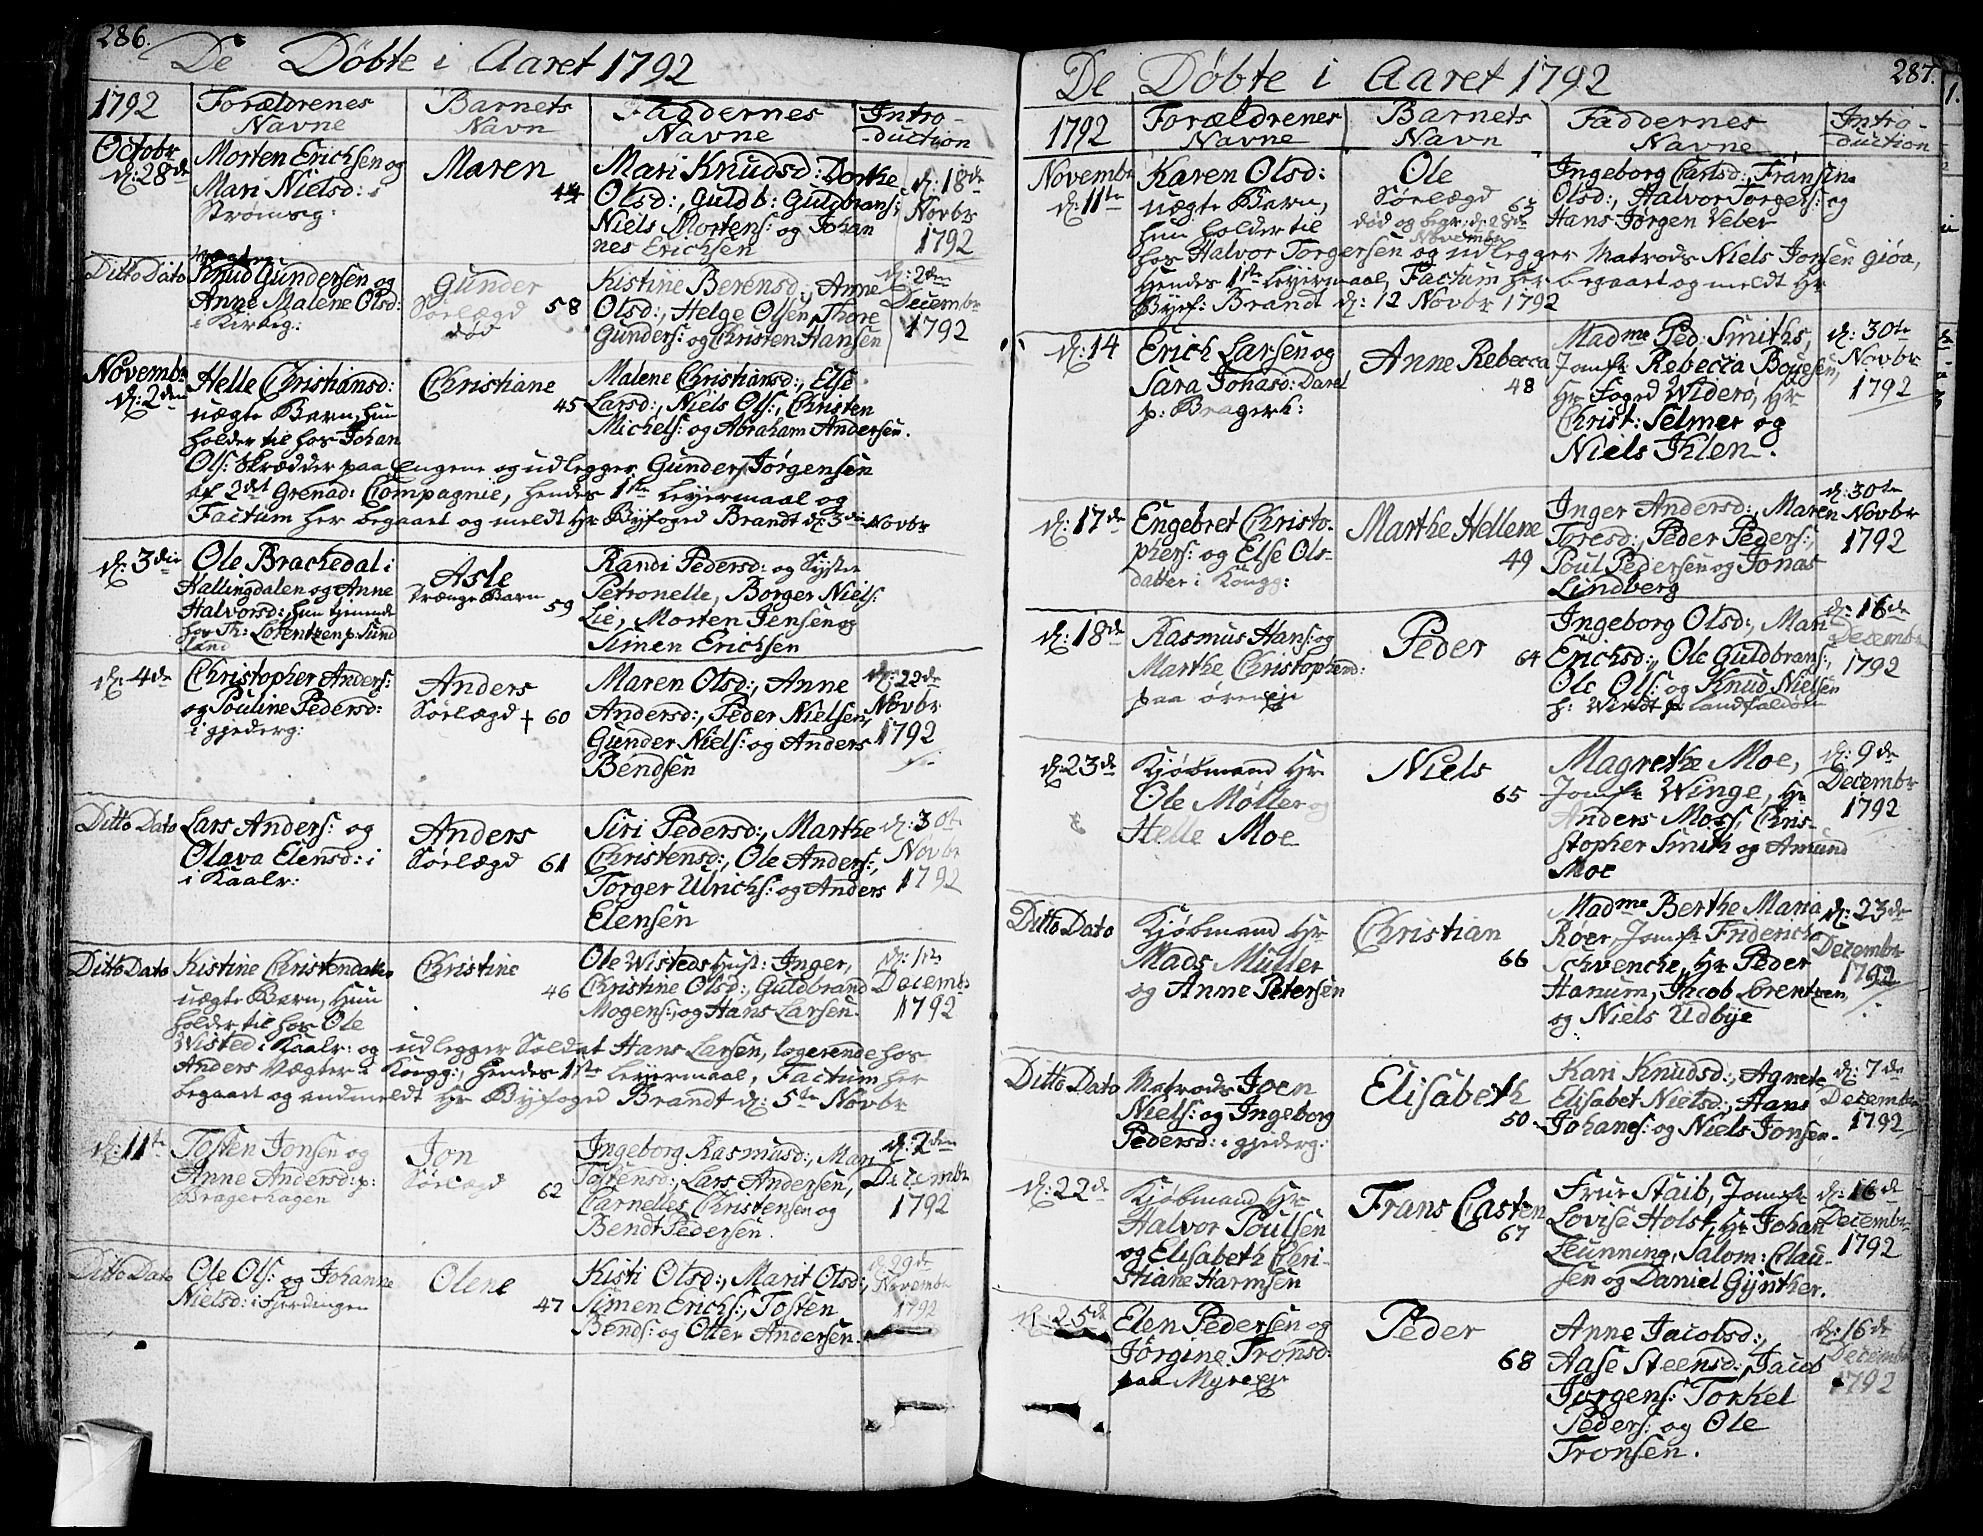 286.
De Döbte i Aaret 1792
1792
Forældrenes
Navne
Barnets
Navn
Faddernes
Navne
Intro-
-duction
Octobr
d: 28de
Morten Erichsen og
Mari Nielsd: i
Strømsg:
Maren
44
Mari Knudsd: Dorthe
Olsd:, Guldb: Guldbrans:
Niels Mortens: og Johan
nes Erichsen
d: 18de
Novbr
1792
Ditto Dato
Knud Gundersen og
Anne Malene Olsd:
i Kirkeg:
Gunder
Sörlægd
död
58
Kistine Berensd:, Anne
Olsd:, Helge Olsen, Thore
Gunders: og Christen Hansen
d: 2den
Decembr
1792
Novembr
d: 2den
Helle Christiansd:
uægte Barn, hun
holder til hos Johan
Christiane
45
Malene Christiansd:, Else
Larsd:, Niels Ols:, Christen
Michels: og Abraham Andersen.
Ols: Skrædder paa Engene og udlegger Gunder Jörgensen
af 2det Grenad: Compagnie, hendes 1ste Leyermaal og
Factum her begaaet og meldt Hr Byfoged Brandt d: 3die Novbr
d: 3die
Ole Brachedal i
Hallingdalen og Anne
Halvorsd:, hun tjenende
hos Th: Lorentzen p: Sund
land
Asle
Trænge Barn
59
Randi Pedersd: og Syster
Petronelle, Borger Niels:
Lie, Morten Jensen og
Simen Erichsen
d: 4de
Christopher Anders:
og Pouline Pedersd:
i gjederg:
Anders
Sörlægd +
60
Maren Olsd:, Anne
Andersd:, Peder Nielsen,
Gunder Niels: og Anders
Bendsen
d: 22de
Novbr
1792
Ditto Dato
Lars Anders: og
Olava Elensd: i
i Kaalr:
Anders
Sörlægd
61
Siri Pedersd:, Marthe
Christensd:, Ole Anders:,
Torger Ulrichs: og Anders
Elensen
d: 30te
Novbr
1792
Ditto Dato
Kistine Christendatter
uægte Barn, Hun
holder til hos Ole
Christine
46
Ole Wisteds Hust: Inger,
Christine Olsd:, Guldbrand
Mogens:, og Hans Larsen.
d: 1ste
Decembr
1792
Wisted i Kaalr: og udlegger Soldat Hans Larsen, logerende hos
Anders Vægter i Kongg:, hendes 1ste Leyermaal, Factum her
begaaet og andmeldt Hr Byfoged Brandt d: 5te Novbr
d: 11te
Tosten Jonsen og
Anne Andersd: p:
Bragerhagen
Jon
Sörlægd
62
Ingeborg Rasmusd:, Mari
Tostensd:, Lars Andersen,
Carnelles Christensen og
Bendt Pedersen.
d: 2den
Decembr
1792
Ditto Dato
Ole Ols: og Johanne
Nielsd: i Fjerdingen
Olene
47
Kisti Olsd:, Marit Olsd:,
Simen Erichs:, Tosten
Bends: og Otter Andersen.
d: 29de
Novembr
1792
287.
De Döbte i Aaret 1792
1792
Forældrenes
Navne
Barnets
Navn
Faddernes
Navne
Intro-
-duction
Novembr
d: 11te
Karen Olsd:
uægte Barn,
hun holder til
Ole
Sörlægd
63
död og begr: d: 28de
Novembr
Ingeborg Carlsd:, Fransin
Olsd:, Halvor Torgers: og
Hans Jörgen Veber
hos Halvor Torgersen og udlegger Matrods Niels Jonsen Gjöa,
Hendes 1ste Leyermaal, Factum her begaaet og meldt Hr
Byef: Brandt d: 12 Novbr 1792
d: 14
Erich Larsen og
Sara Johasd: Darel
p: Bragerh:
Anne Rebecca
48
Madme Ped: Smiths,
Jomfr Rebecca Boyesen,
Hr Foged Widerö, Hr
Christ: Selmer og
Niels Klen.
d: 30te
Novbr
1792
d: 17de
Engebret Christo-
phers: og Else Ols-
datter i Kongg:
Marthe Hellene
49
Inger Andersd:, Maren
Toresd:, Peder Peders:,
Poul Pedersen og Jonas
Lindberg
d: 30te
Novbr
1792
d: 18de
Rasmus Hans: og
Marthe Christophend:
paa örenEje
Peder
64
Ingeborg Olsd:, Mari
Erichsd:, Ole Guldbrans:,
Ole Ols: og Knud Nielsen
d: 16de
Decembr
1792
d: 23de
Kjöbmand Hr
Ole Möller og
Helle Moe
Niels
65
Magrethe Moe,
Jomfr Winge, Hr
Anders Moss, Chris-
stopher Smith og Amund
Moe
d: 9de
Decembr
1792
Ditto Dato
Kjöbmand Hr
Mads Müller
og Anne Petersen
Christian
66
Madme Berthe Maria
Roer, Jomfr Fridenche
Schvencke, Hr Peder
Hanum, Jacob Lorentzen,
og Niels Udbye
d: 23de
Decembr
1792
Ditto Dato
Matrods Joen
Niels: og Ingeborg
Pedersd: i gjederg:
Elisabeth
50
Kari Knudsd:, Agnete
Elisabet Nielsd:, Hans
Johans: og Niels Jonsen.
d: 7de
Decembr
1792
d: 22de
Kjöbmand Hr
Halvor Poulsen
og Elisabeth Chri-
stiane Harmsen
Frans Casten
67
Frue Staib, Jomfr
Lovise Holst, Hr Johan
Leunning, Salom: Clau-
sen og Daniel Gynther.
d: 16de
Decembr
1792
d: 25de
Elen Pedersen og
Jörgine Tronsd:
paa MyreEje
Peder
68
Anne Jacobsd:,
Aase Steensd:, Jacob
Jörgens: Torkel
Peders: og Ole
Tronsen.
d: 16de
Decembr
1792